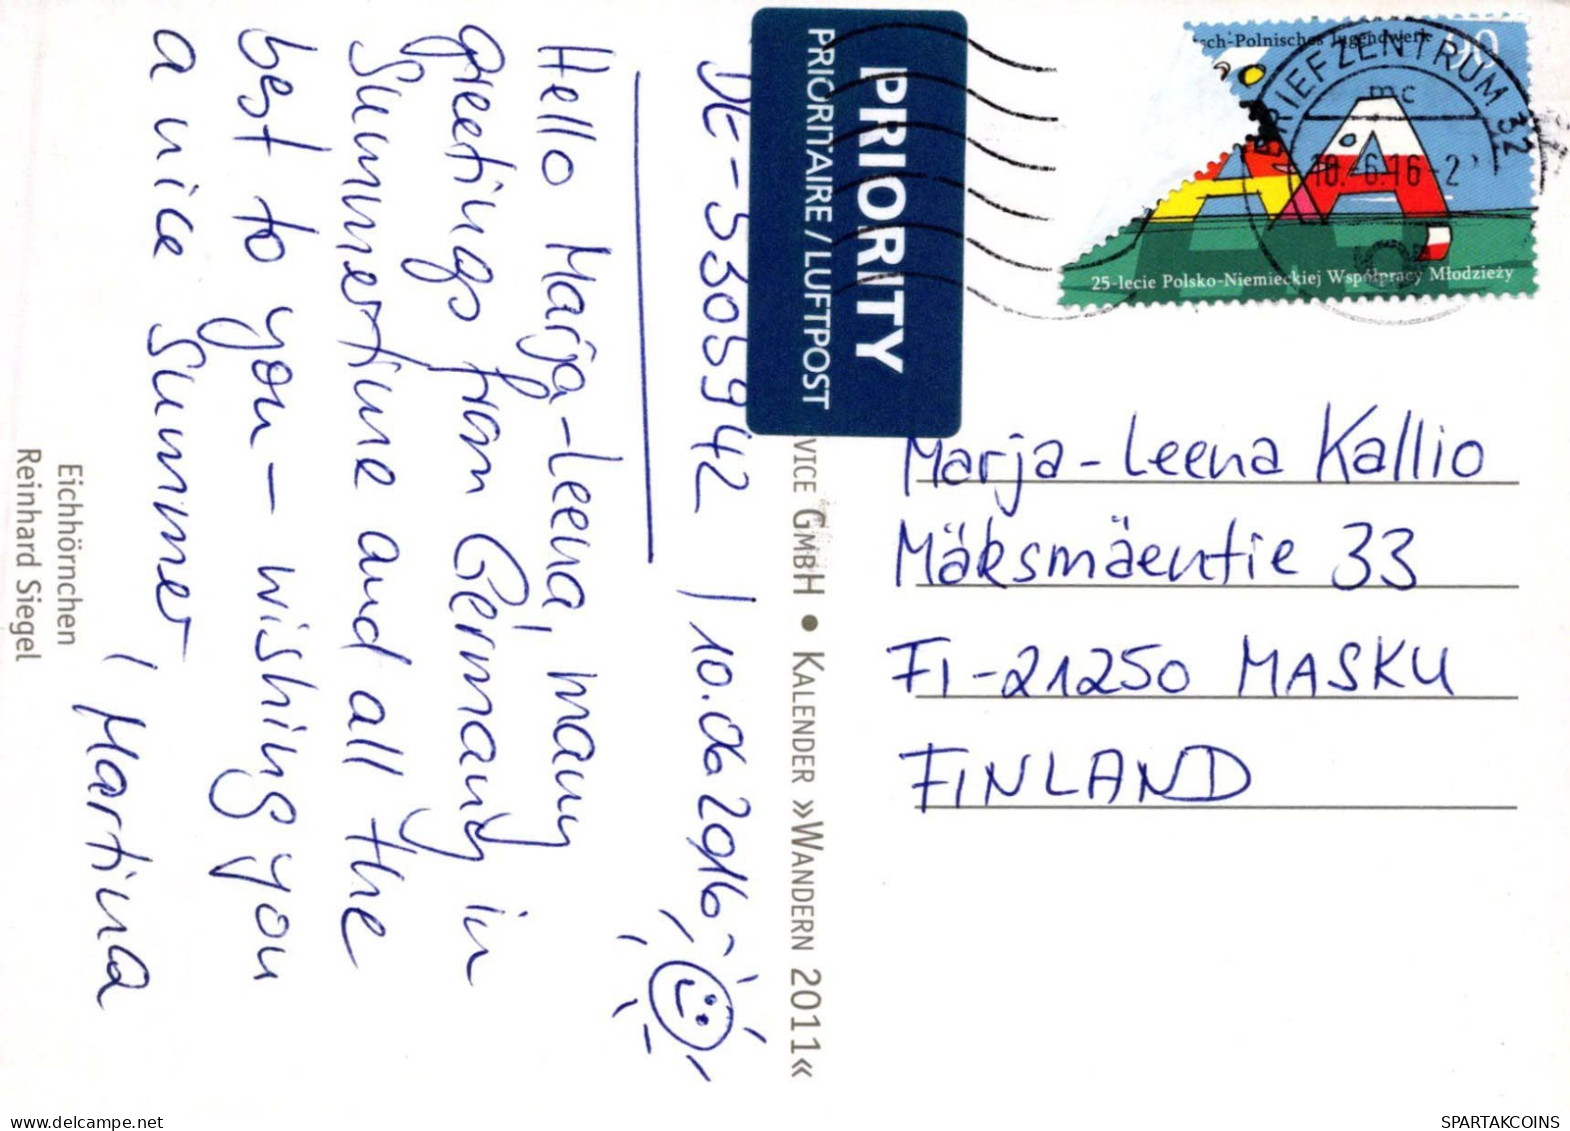 DE-5305942 | 10.06.2016
Hello Marja-Leena, many
greetings from Germany in
Summertime and all the
best to you – wishing you
a nice Summer,
Martina
Eichhörnchen
Reinhard Siegel
PRIORITY
PRIORITAIRE / LUFTPOST
VICE GMBH • KALENDER »WANDERN 2011«
sch-Polnisches Jugendwerk 90
BRIEFZENTRUM 32
mc
10.-6.16-2
25-lecie Polsko-Niemieckiej Współpracy Młodzieży
Marja-Leena Kallio
Mäksmäentie 33
FI-21250 MASKU
FINLAND
delcampe.net
SPARTAKCOINS